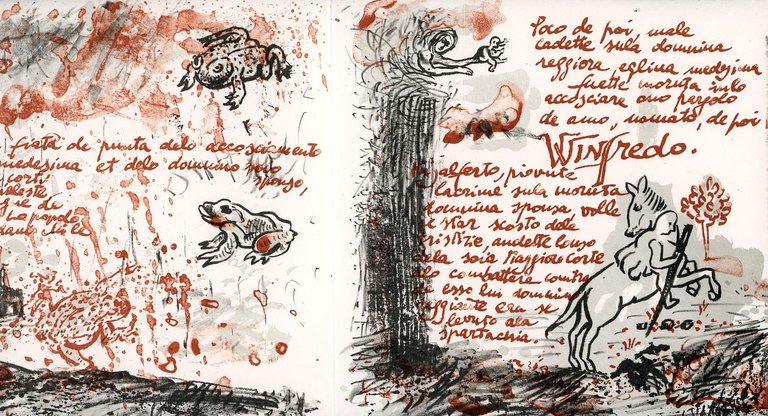 fiata de punta delo accosciamento
medesima et delo dommino
sponso,
corti
celeste
gre de
Lo popolo
Poco de poi, male
cadette sula dommina
reggiora, eglina medesima
fuette morita inlo
accosciare ono pergolo
de amo, nomato, de poi
WINfredo.
alferto, piovute
lacrime sula morita
dommina sponsa, volle
star scosto dele
tristizie, andette longo
dela soia Maggiorcorte
alo combattere contra
esso lui dommino
era se
ala
spartachia